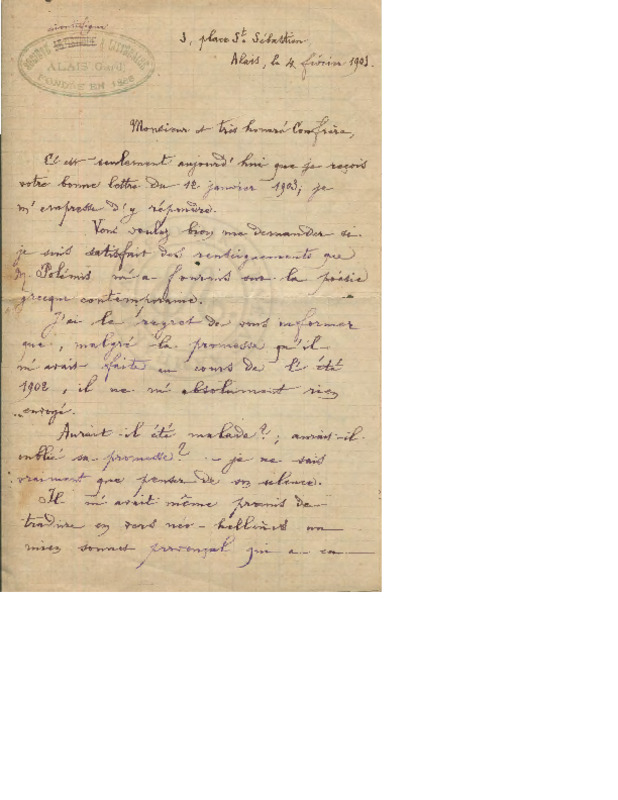 scientifique
SOCIÉTÉ & LITTÉRAIRE
ALAIS (Gard)
FONDÉE EN
3, place St. Sébastien
Alais, le 4 février 1903.
Monsieur et très honoré Confrère,
C'est seulement aujourd'hui que je reçois
votre bonne lettre du 12 janvier 1903; je
m'empresse d'y répondre.
Vous voulez bien me demander si
je suis satisfait des renseignements que
M. Polémis m'a fournis sur la poésie
grecque contemporaine.
J'ai le regret de vous informer
que, malgré la promesse qu'il
m'avait faite au cours de l'été
1902, il ne m'a absolument rien
envoyé.
Aurait-il été malade?; aurait-il
oublié sa promesse? - je ne sais
vraiment que penser de son silence.
Il m'avait même promis de
traduire en vers néo-hellènes un
mien sonnet provençal qui a eu